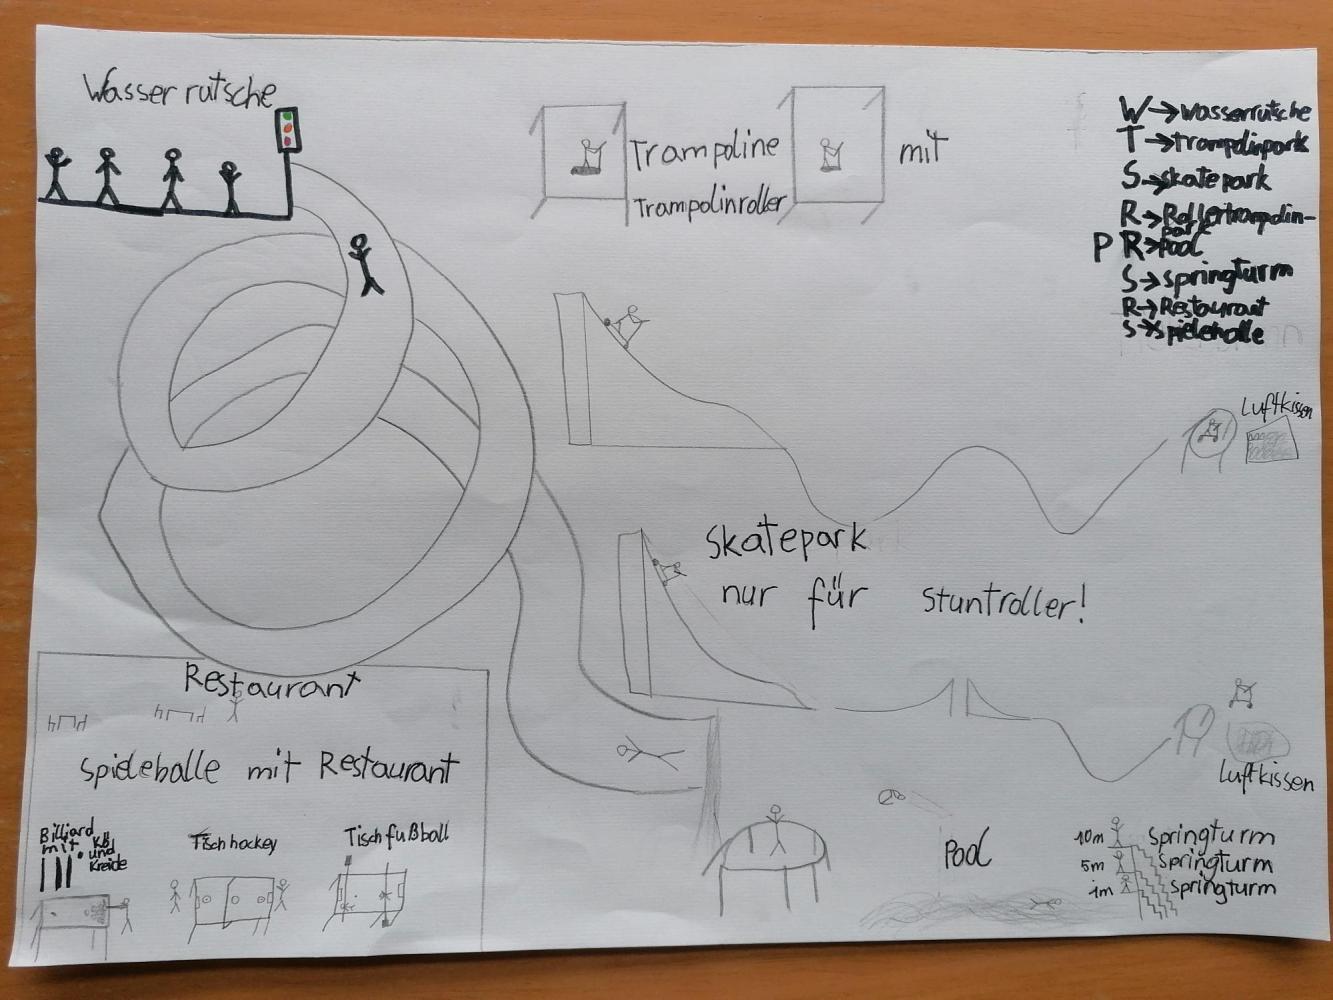 Wasserrutsche
Trampoline mit
Trampolinroller
W→wasserrutsche
T→trampolinpark
S→skatepark
R→Rollertrampolin-
park
P R→Pool
S→springturm
R→Restaurant
S→spielehalle
Luftkissen
skatepark
nur für stuntroller!
Luftkissen
Restaurant
spielehalle mit Restaurant
Billiard
mit Kö
und
Kreide
Tischhockey
Tischfußball
Pool
10m springturm
5m springturm
1m springturm